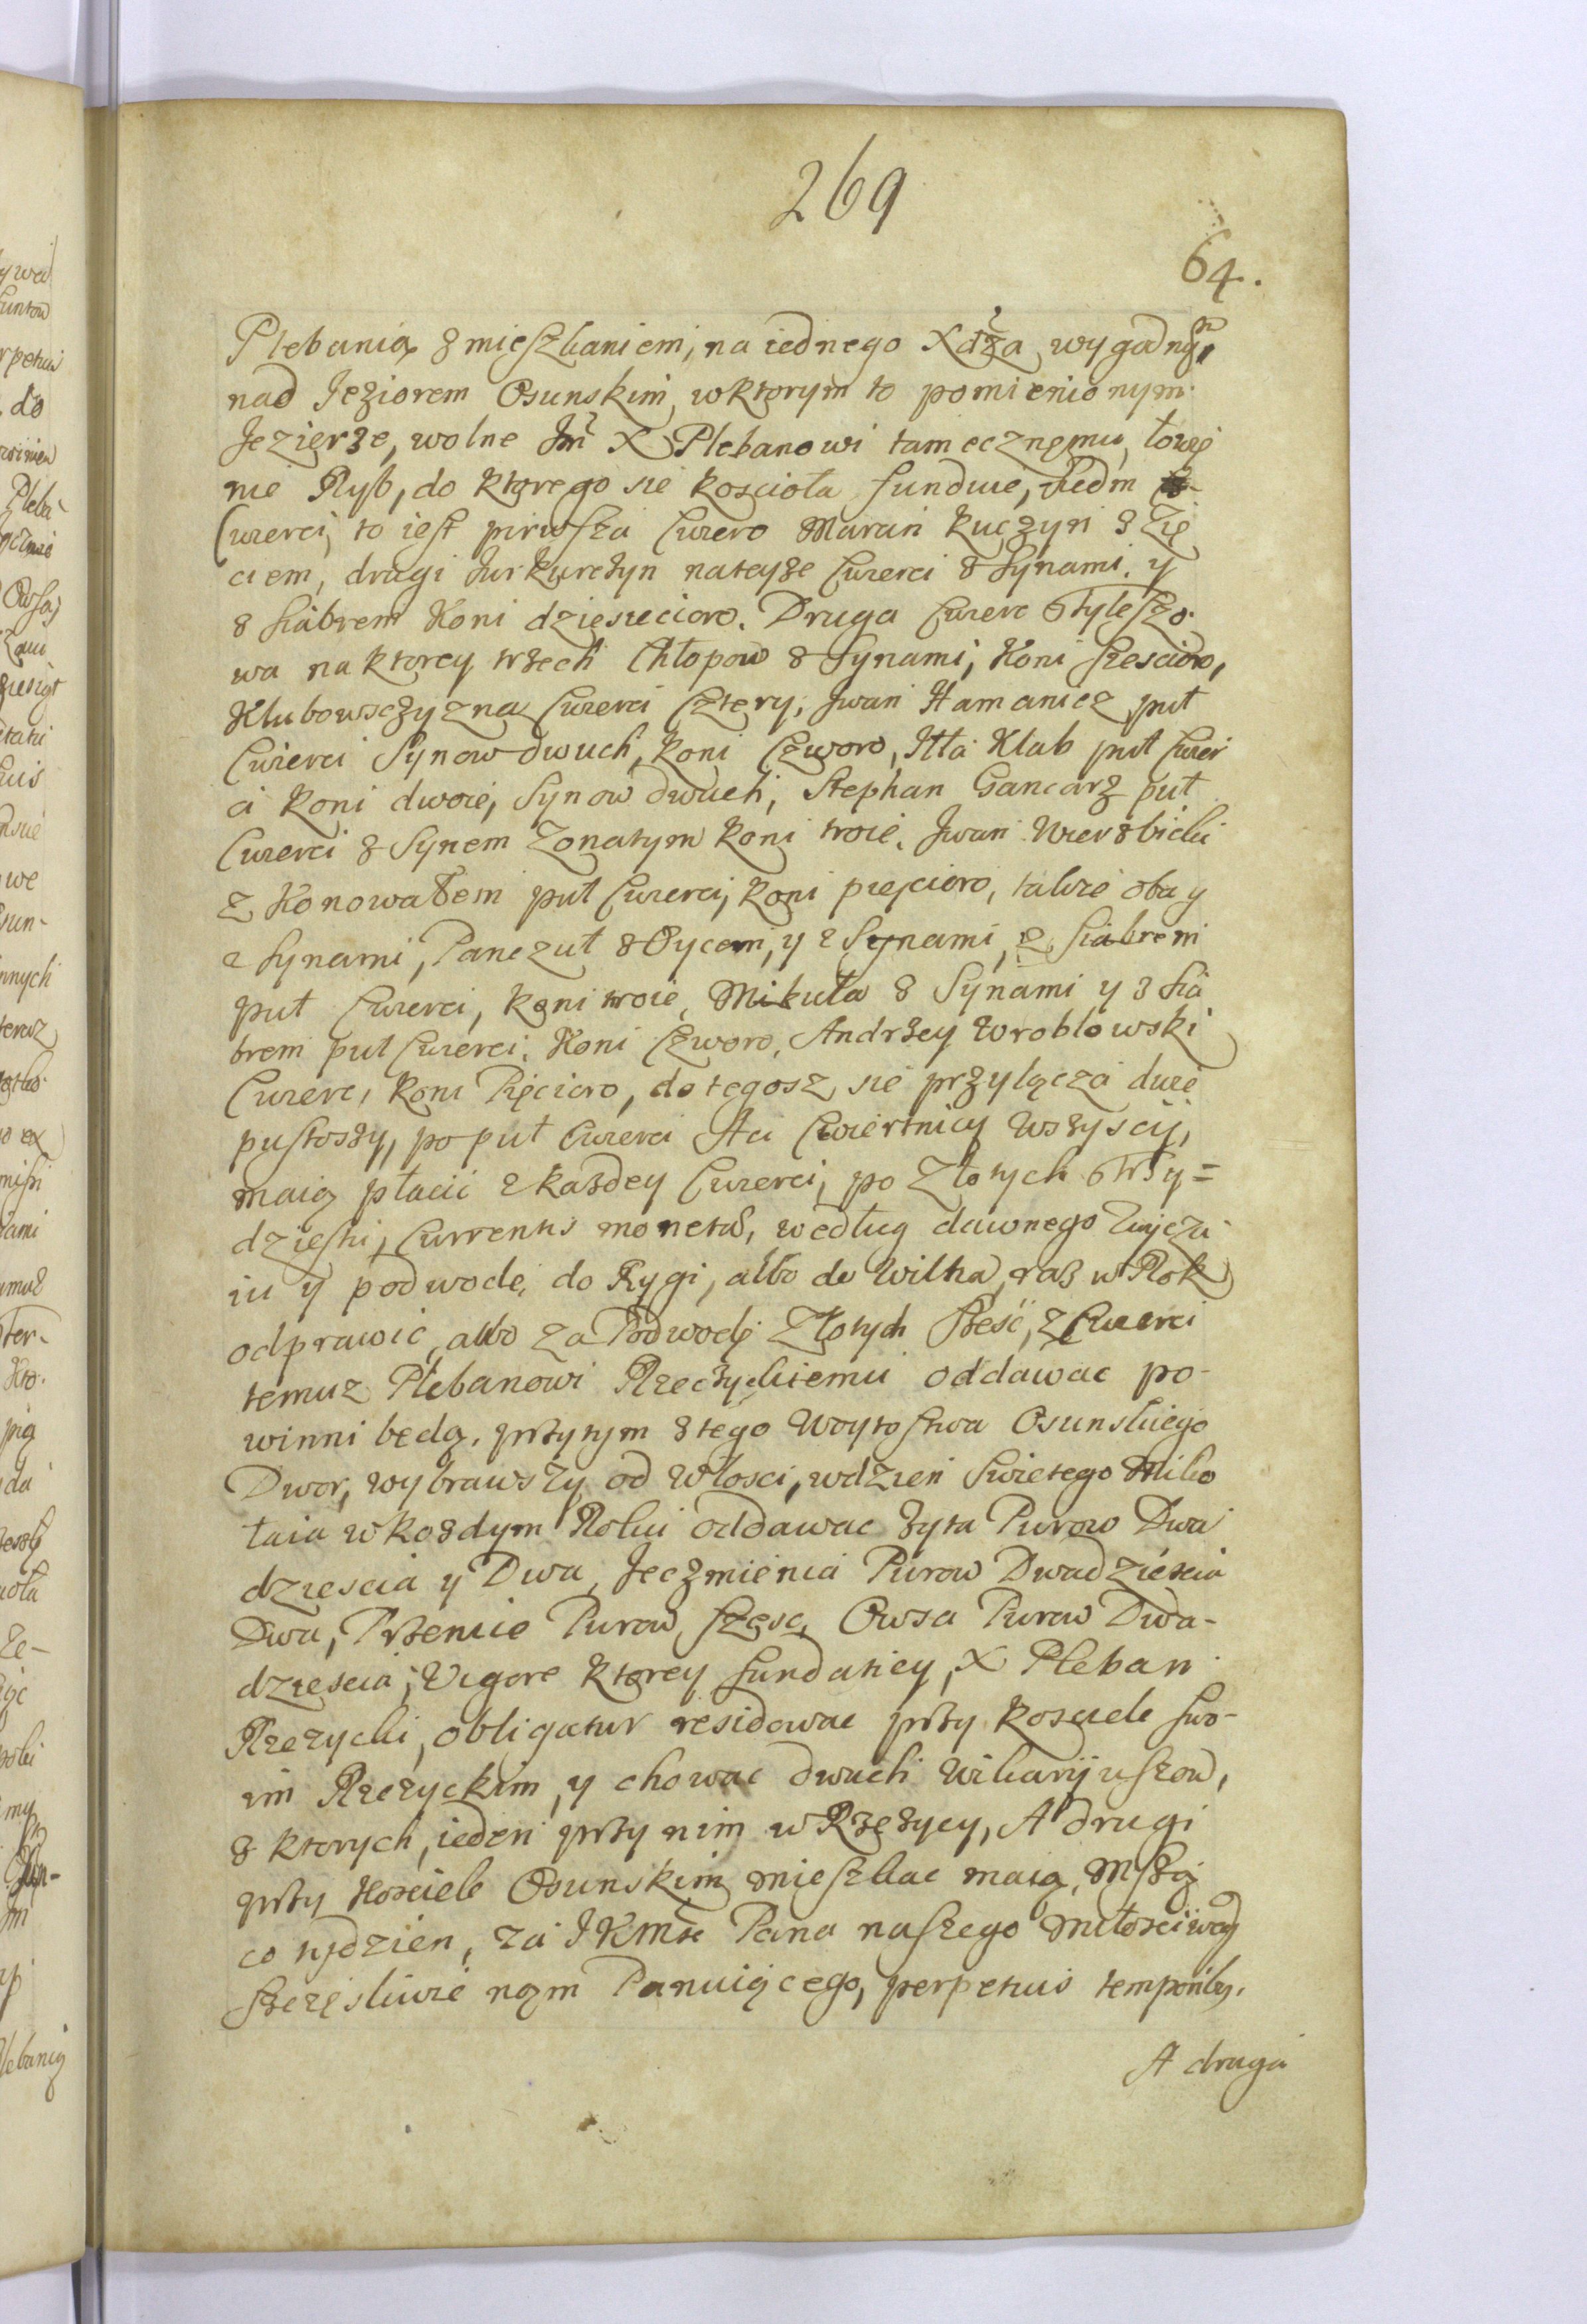 269
64.
Plebanią z mieszkaniem, na iednego Xdza wygadnym,
nad Jeziorem Osunskim, wktorym to pomienionym
Jezierze, wolne Jm X Plebanowi tamecznemu, łowię
nie Ryb, do ktorego sie koscioła funduie, siedm
Cwierci, to iest pirwsza Cwierc Marcin Kuczyn z Zię
ciem, drugi Jurkurczyn nateyze Cwierci z Synami, y
z siabrem Koni dziesiecioro. Druga Cwierc Tyleszo
wa na ktorey trzech Chłopow z Synami, Koni szescioro,
Klubowsczyzna Cwierci Cztery, Jwan Hamanicz puł
Cwierci Synow dwuch, koni Czworo, Itta Klab puł Cwier
ci koni dwoie, Synow dwuch, Stephan Gancarz puł
Cwierci z Synem Zonatym koni troie, Jwan Wierzbicki
z Konowałem puł Cwierci, koni pięcioro, takze oba y
z Synami, Panczuł z Oycem, y z Synami, z siabrem
puł Cwierci, koni troie, Mikuła z Synami y z sia
brem puł Cwierci, Koni Czworo, Andrzey Wroblowski
Cwierc, koni Pięcioro, do tegosz sie przyłącza dwie
pustoszy, po puł Cwierci Aci Cwiertnicy wszyscy,
maią płacic z kazdey Cwierci, po Złotych Trzy=
dziesti, Currentis monetæ, według dawnego Zwycza
iu y podwode, do Rygi, albo do Wilna, raz w Rok
odprawic, albo za Podwodę Złotych szesc, z Cwierci
temuz Plebanowi Rzeczyckiemu oddawac po-
winni będą, przytym z tego Woytostwa Osunskiego
Dwor, wybrawszy od Włosci, wdzien swietego Miko
łaia w kozdym Roku oddawac zyta Purow Dwa
dziescia y Dwa, Jeczmienia Purow Dwadziescia
Dwa, Przenice Purow szesc, Owsa Purow Dwa-
dziescia, Vigore ktorey fundatiey, X Pleban
Rzezycki, obligatur residowac przy kosciele swo-
im Rzezyckim, y chowac dwuch Wikaryjuszow,
z ktorych, ieden przy nim w Rzezycy, A drugi
przy Kosciele Osunskim mieszkac maią, Mszą
co tydzien, za JKMsc Pana naszego Miłosciwego
szczęsliwie nam Panuiącego, perpetuis temporibus,
A druga